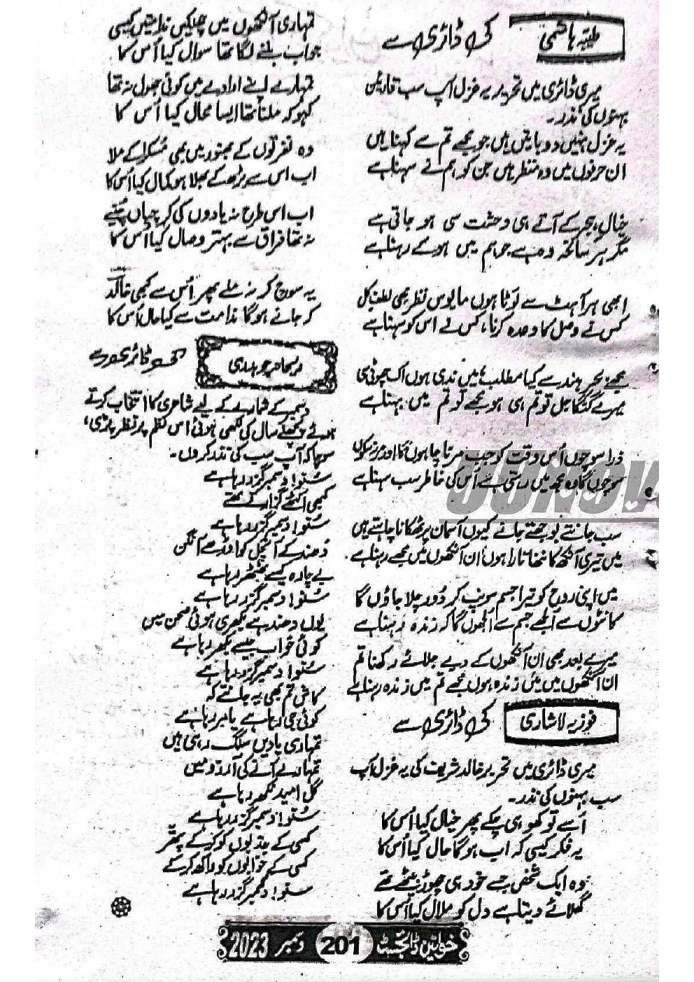 طیبہ ہاشمی کی ڈائری سے
میری ڈائری میں تحریر یہ غزل آپ سب قارئین
بہنوں کی نذر۔
یہ غزل نہیں دو باتیں ہیں جو مجھے تم سے کہنا ہیں
ان حرفوں میں وہ منظر ہیں جن کو ہم نے سہنا ہے
خیال ہجر کے آتے ہی وحشت سی ہو جاتی ہے
مگر ہر سانحہ وہ ہے جو ہم میں ہو کے رہنا ہے
ابھی ہر آہٹ سے ٹوٹا ہوں مایوس نظر بھی
کس نے وصل کا وعدہ کرنا، کس نے اس کو سہنا ہے
مجھے بحر ہند سے کیا مطلب میں ندی ہوں اک چھوٹی سی
میرے گنگا جل تو تم ہی ہو مجھے تو تم میں بہنا ہے
ذرا سوچوں اس وقت کو جب مرنا چاہوں گا اور مر نہ سکوں
سوچوں گا وہ مجھ میں رہتی ہے اس کی خاطر سب سہنا ہے
سب جانتے بوجھتے جانے کیوں آسمان پر ٹھکانا چاہتے ہیں
میں تیری آنکھ کا ننھا تارا ہوں ان آنکھوں میں مجھے رہنا ہے
میں اپنی روح کو تیرا جسم سونپ کر دور چلا جاؤں گا
کانٹوں سے الجھے جسم سے الجھوں گا کہ زندہ رہنا ہے
میرے بعد بھی ان آنکھوں کے دیے جلائے رکھنا تم
ان آنکھوں میں میں زندہ ہوں مجھے تم میں زندہ رہنا ہے
فوزیہ لاشاری کی ڈائری سے
میری ڈائری میں تحریر خالد شریف کی یہ غزل آپ
سب بہنوں کی نذر۔
اسے تو کھو ہی چکے پھر خیال کیا اس کا
یہ فکر کیسی کہ اب ہوگا حال کیا اس کا
وہ ایک شخص جسے خود ہی چھوڑ بیٹھے تھے
گھلائے دیتا ہے دل کو ملال کیا اس کا
تمہاری آنکھوں میں چھلکیں ندامتیں کیسی
جواب بننے لگا تھا سوال کیا اس کا
تمہارے اپنے ارادے میں کوئی جھول نہ تھا
کہو کہ ملنا تھا ایسا محال کیا اس کا
وہ نفرتوں کے بھنور میں بھی مسکرا کے ملا
اب اس سے بڑھ کے بھلا ہو کمال کیا اس کا
اب اس طرح نہ یادوں کی کرچیاں چنیے
نہ تھا فراق سے بہتر وصال کیا اس کا
یہ سوچ کر نہ ملے پھر اس سے کبھی خالد
کہ جانے ہوگا ندامت سے حال کیا اس کا
چوہدری
دسمبر کے شمارے کے لیے شاعری کا انتخاب کرتے
ہوئے پچھلے سال کی لکھی ہوئی اس نظم پر نظر پڑی،
سوچا کہ آپ سب کی نذر کروں۔
سنو! دسمبر گزر رہا ہے
کبھی اکٹھے گزارتے تھے
سنو! دسمبر گزر رہا ہے
دھند کے آنچل کو اوڑھے آنگن
بے چارہ کیسے ٹھٹھر رہا ہے
سنو! دسمبر گزر رہا ہے
یوں دھند ہے بکھری ہوئی صحن میں
کوئی خواب جیسے بکھر رہا ہے
سنو! دسمبر گزر رہا ہے
کاش تم بھی یہ جانتے کہ
کوئی جی رہا ہے یا مر رہا ہے
تمہاری یادیں سلگ رہی ہیں
تمہارے آنے کی آرزو میں
گل امید نکھر رہا ہے
سنو! دسمبر گزر رہا ہے
کسی کے جذبوں کو کر کے پتھر
کسی کے خوابوں کو راکھ کر کے
سنو! دسمبر گزر رہا ہے
خواتین ڈائجسٹ 201 دسمبر 2023